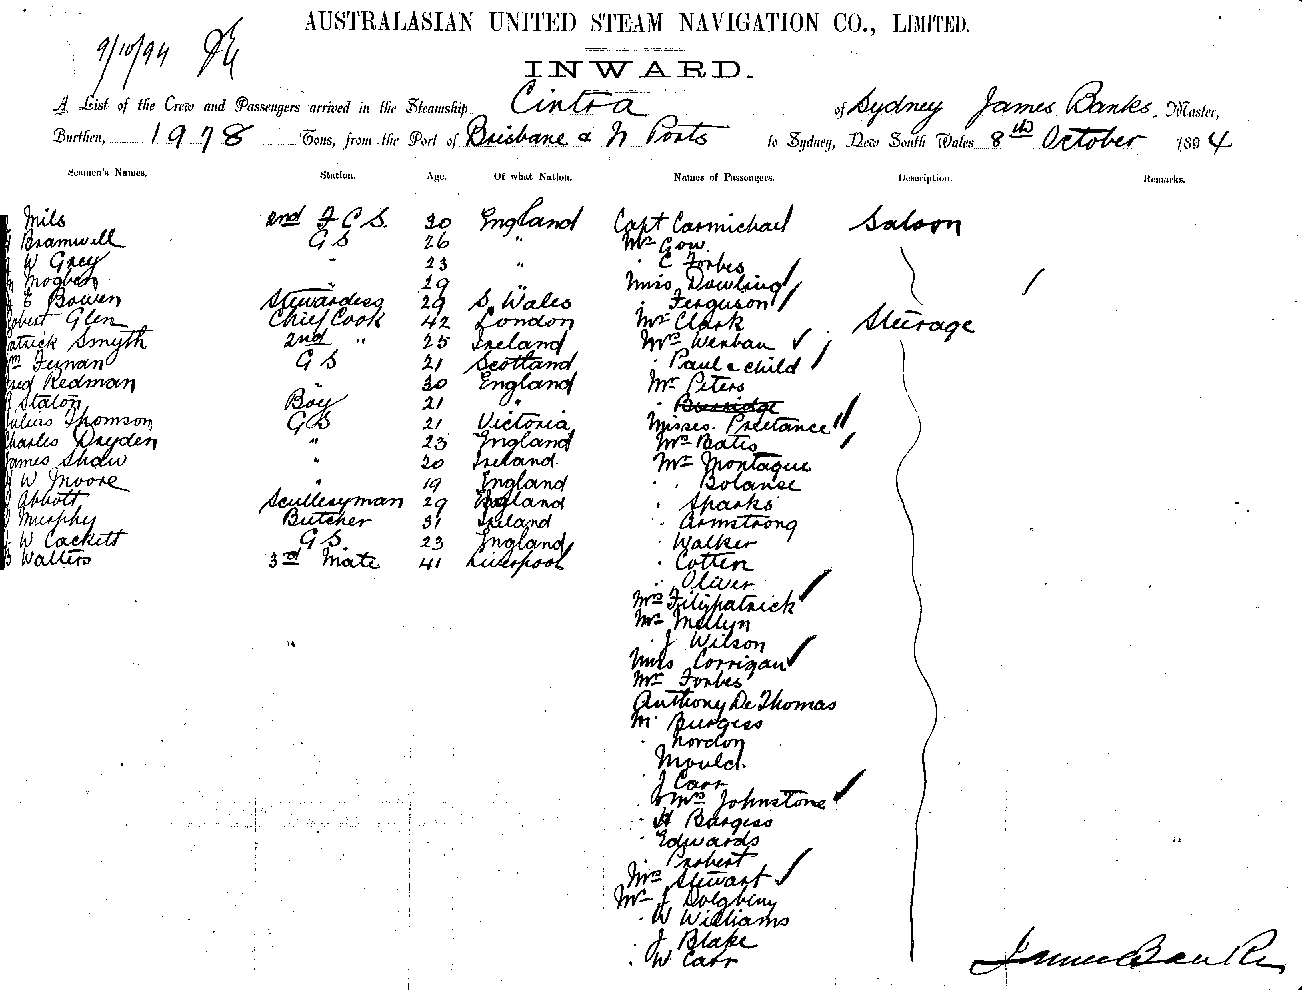 AUSTRALASIAN UNITED STEAM NAVIGATION CO., LIMITED.
9/10/94
INWARD.
A List of the Crew and Passengers arrived in the Steamship Cintra of Sydney James Banks, Master,
Burthen, 1978 Tons, from the Port of Brisbane & N Ports to Sydney, New South Wales 8th October 1894
Seamen's Names. Station. Age. Of what Nation. Names of Passengers. Description. Remarks.
Mils 2nd F C S. 30 England Capt Carmichael / Saloon
Bramwell G S 26 " Mr Gow
W Grey " 23 " " C Forbes
Mogben " 29 " Miss Dowling / /
E Bowen Stewardess 29 S. Wales Ferguson /
obert Glen Chief Cook 42 London Mr Clark Steerage
atrick Smyth 2nd " 25 Ireland Mrs Wenban √
m Feynan G S 21 Scotland " Paul & child /
red Redman " 30 England Mr Peters
Stalon Boy 21 "
ulius Thomson G S 21 Victoria Misses Preetance //
harles Dryden " 23 England Mrs Batis /
ames Shaw " 20 Ireland Mr Montague
W Moore " 19 England " Bolanse
Abbott Sculleryman 29 England " Sparks
Murphy Butcher 31 Ireland " Armstrong
W Cackett G S 23 England " Walker
Walters 3rd Mate 41 Liverpool " Cotten
" Oliver
Mrs Fitzpatrick √
Mr Mellyn
" J Wilson
Miss Corrigan √
Mr Forbes
Anthony De Thomas
Mr Burgess
" Nordon
Mould
J Carr
& Mrs Johnstone √
" H Burgess
" Edwards
" Probert
Mrs Stewart √
Mr J
" W Williams
" J Blake
" W Carr
James Banks